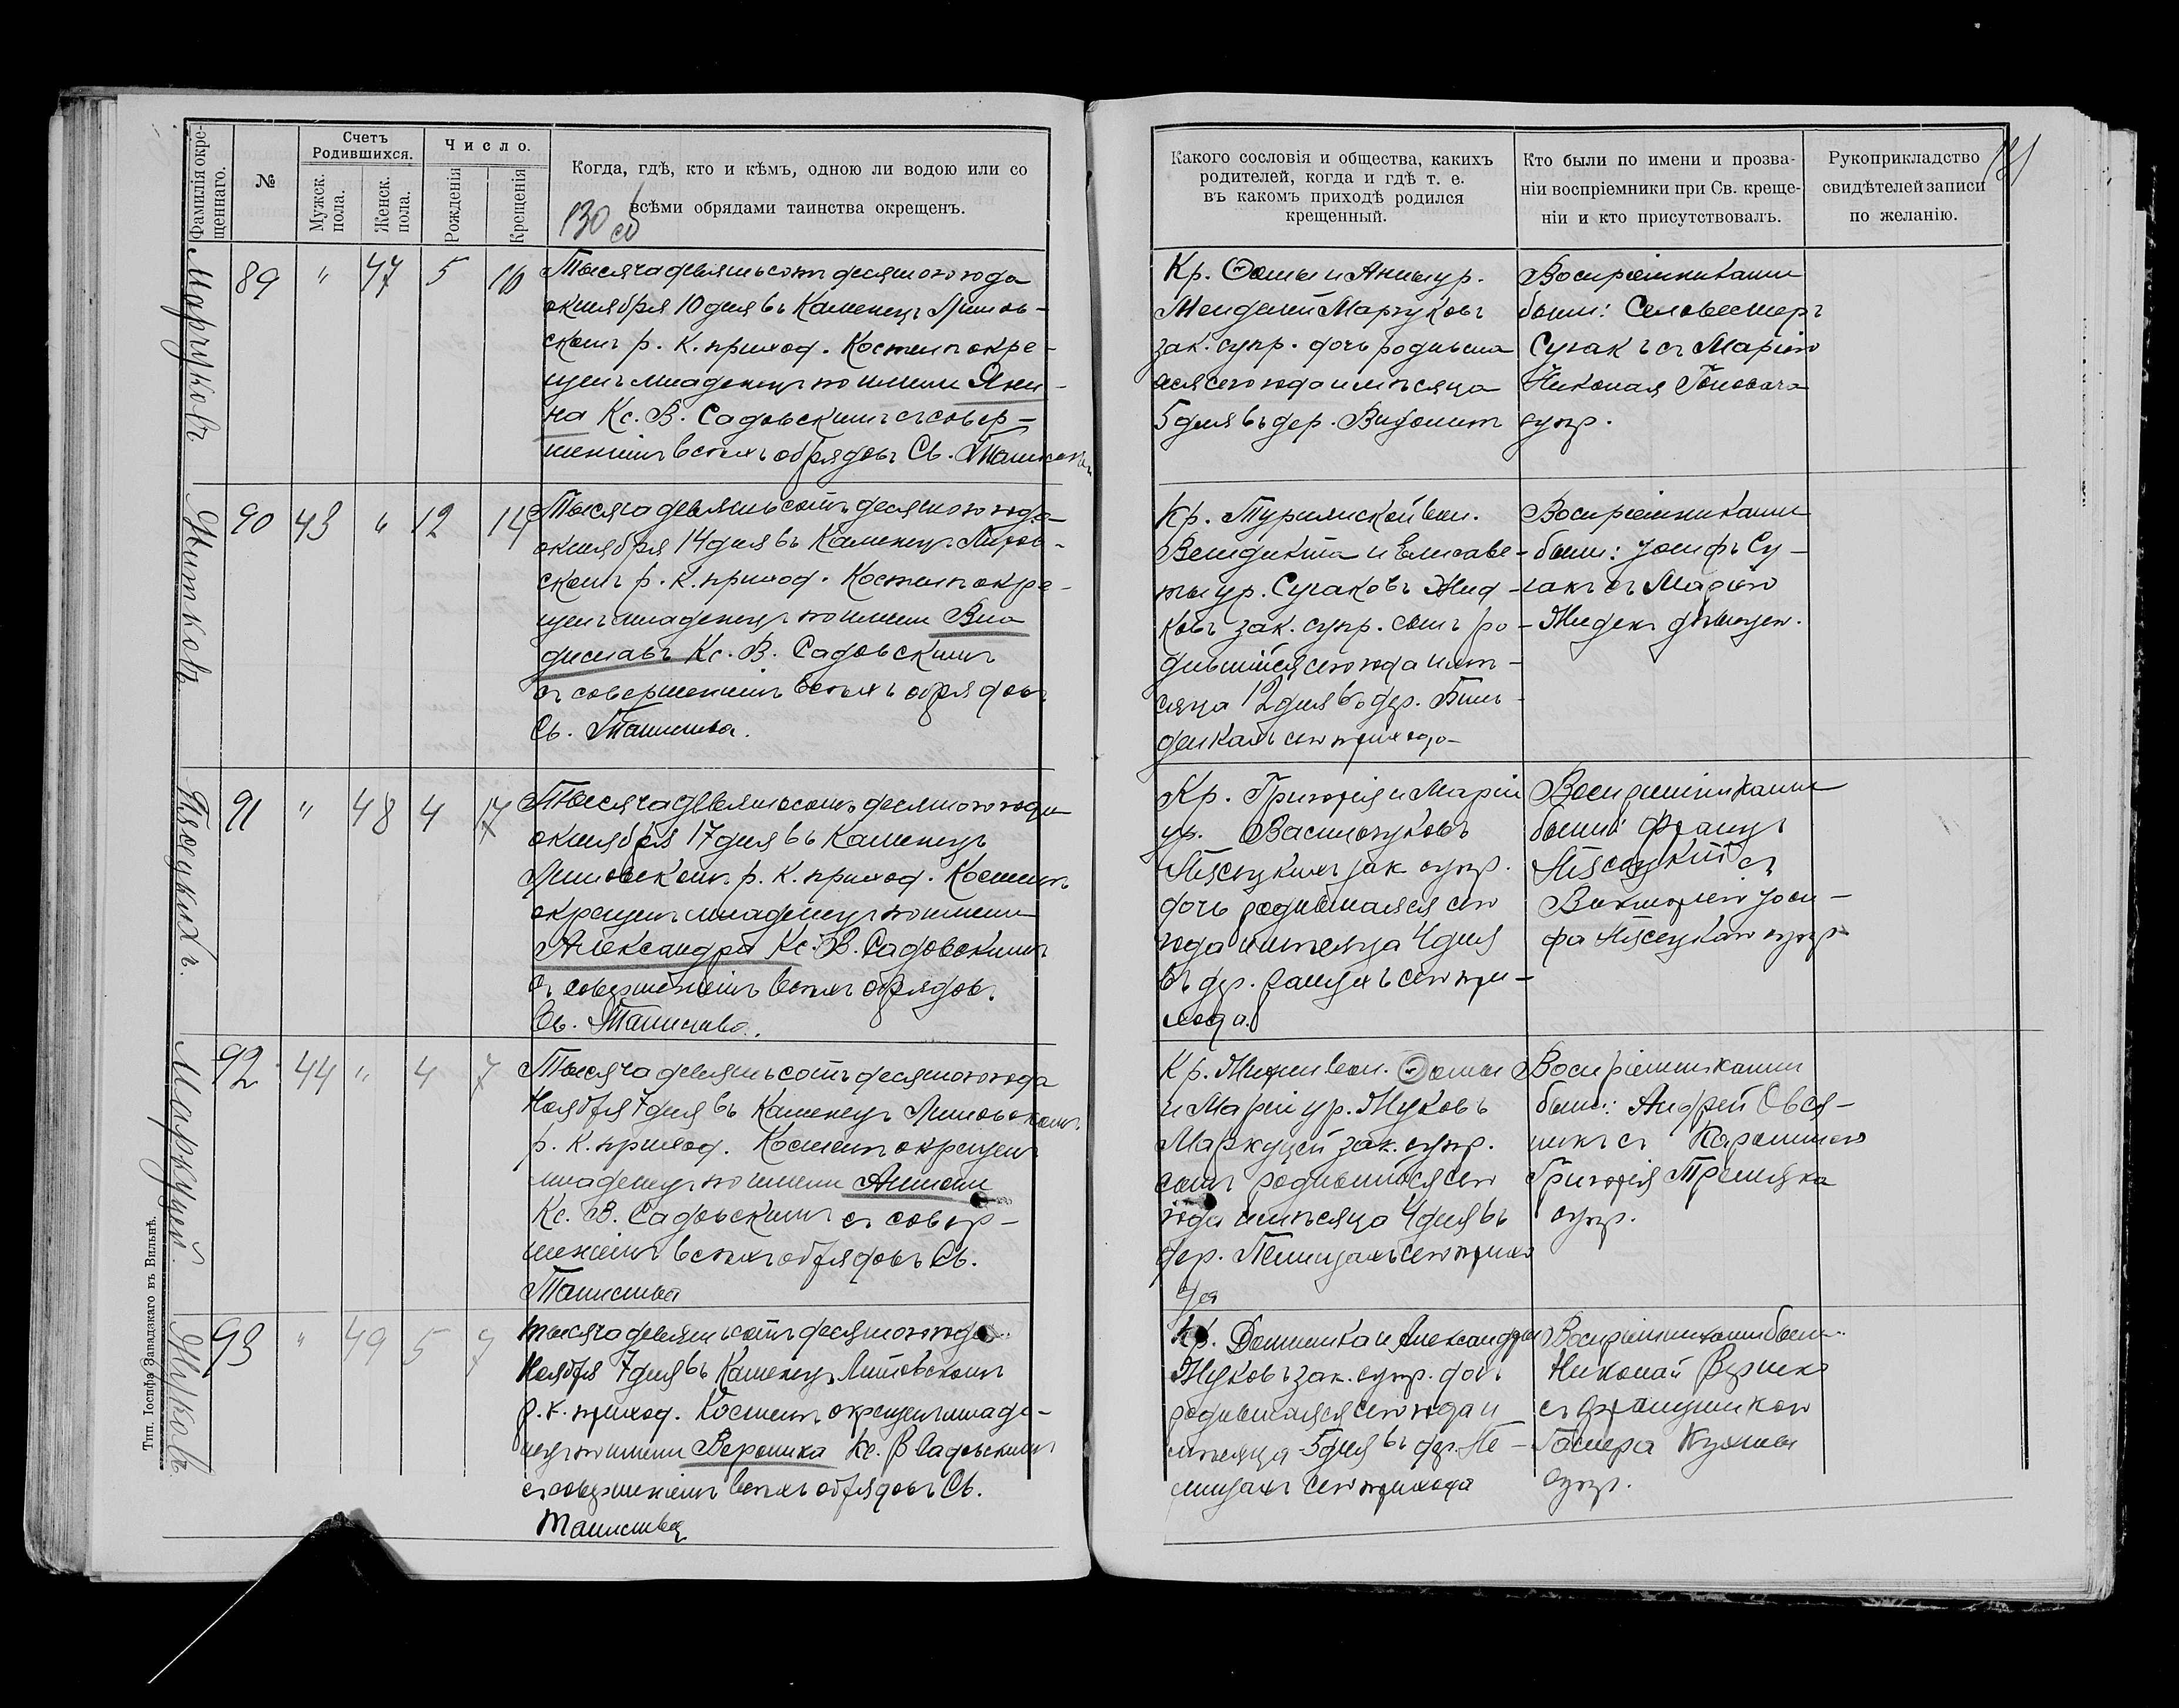 Фамилія окре-
щеннаго.
№
Счетъ
Родившихся.
Мужск.
пола.
Женск.
пола.
Число.
Рожденія
Крещенія
Когда, гдѣ, кто и кѣмъ, одною ли водою или со
всѣми обрядами таинства окрещенъ.
130 об
Какого сословія и общества, какихъ
родителей, когда и гдѣ т. е.
въ какомъ приходѣ родился
крещенный.
Кто были по имени и прозва-
ніи воспріемники при Св. креще-
ніи и кто присутствовалъ.
Рукоприкладство
свидѣтелей записи
по желанію.
131
Марчуковъ
89 " 47 5 10
Тысяча девятьсотъ десятого года
октября 10 дня въ Каменецъ Литов-
скомъ р. к. приход. Костелѣ окре-
щенъ младенецъ по имени Яни-
на Кс. В. Садовскимъ съ совер-
шеніемъ всѣхъ обрядовъ Св. Таинства
Кр. Ѳомы и Анны ур.
Марчуковъ
зак. супр. дочь родивша
яся сего года и мѣсяца
5 дня въ дер. Видомит
Воспріемниками
были: Селивестръ
Сучакъ съ Маріею
Николая Головача
супр.
Житковъ
90 43 " 12 14
Тысяча девятьсотъ десятого года
октября 14 дня въ Каменецъ Литов-
скомъ р. к. приход. Костелѣ окре-
щенъ младенецъ по имени Вла
диславъ Кс. В. Садовскимъ
съ совершеніемъ всѣхъ обрядовъ
Св. Таинства.
Кр. Турилиской вол.
Венедикта и Елисаве-
ты ур. Сучаковъ Жид-
ковъ зак. супр. сынъ ро-
дившійся сего года и мѣ-
сяца 12 дня въ дер.
сего прихода
Воспріемниками
были: Іосифъ Су-
чакъ съ Маріею
Жидекъ дѣвицею.
Пясецкихъ.
91 " 48 4 17
Тысяча девятьсотъ десятого года
октября 17 дня въ Каменецъ
Литовскомъ р. к. приход. Костелѣ
окрещенъ младенецъ по имени
Александра Кс. В. Садовскимъ
съ совершеніемъ всѣхъ обрядовъ
Св. Таинства.
Кр. Григорія и Маріи
ур. Васильчуковъ
Пясецкихъ зак. супр.
дочь родившаяся сего
года и мѣсяца 4 дня
въ дер. сего при-
хода
Воспріемниками
были Францъ
Пясецкій съ
Викторіею Іоси-
фа Пясецкаго супр.
Маркуцей.
92 44 " 4 7
Тысяча девятьсотъ десятого года
Ноября 7 дня въ Каменецъ Литовскомъ
р. к. приход. Костелѣ окрещенъ
младенецъ по имени Антонъ
Кс. В. Садовскимъ съ совер-
шеніемъ всѣхъ обрядовъ Св.
Таинства
Кр. вол. Ѳомы
и Маріи ур. Жуковъ
Маркуцей зак. супр.
сынъ родившійся сего
года и мѣсяца 4 дня въ
дер. Пелищахъ сего прихо
да
Воспріемниками
были: Андрей Овся-
никъ съ Каролиною
Григорія
супр.
Жуковъ
93 " 49 5 7
Тысяча девятьсотъ десятого года
Ноября 7 дня въ Каменецъ Литовскомъ
р. к. приход. Костелѣ окрещенъ младе-
нецъ по имени Вероника Кс. В Садовскимъ
съ совершеніемъ всѣхъ обрядовъ Св.
Таинства
Кр. Доминика и Александры
Жуковъ зак. супр. дочь
родившаяся сего года и
мѣсяца 5 дня въ дер. Пе-
лищахъ сего прихода
Воспріемниками были
Николай
съ Францишкою
супр.
Тип. Іосифа Завадзкаго въ Вильнѣ.